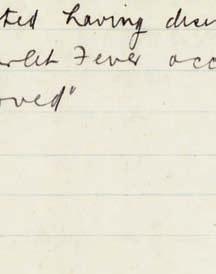 ted having dis
rlet Fever occ
oved"